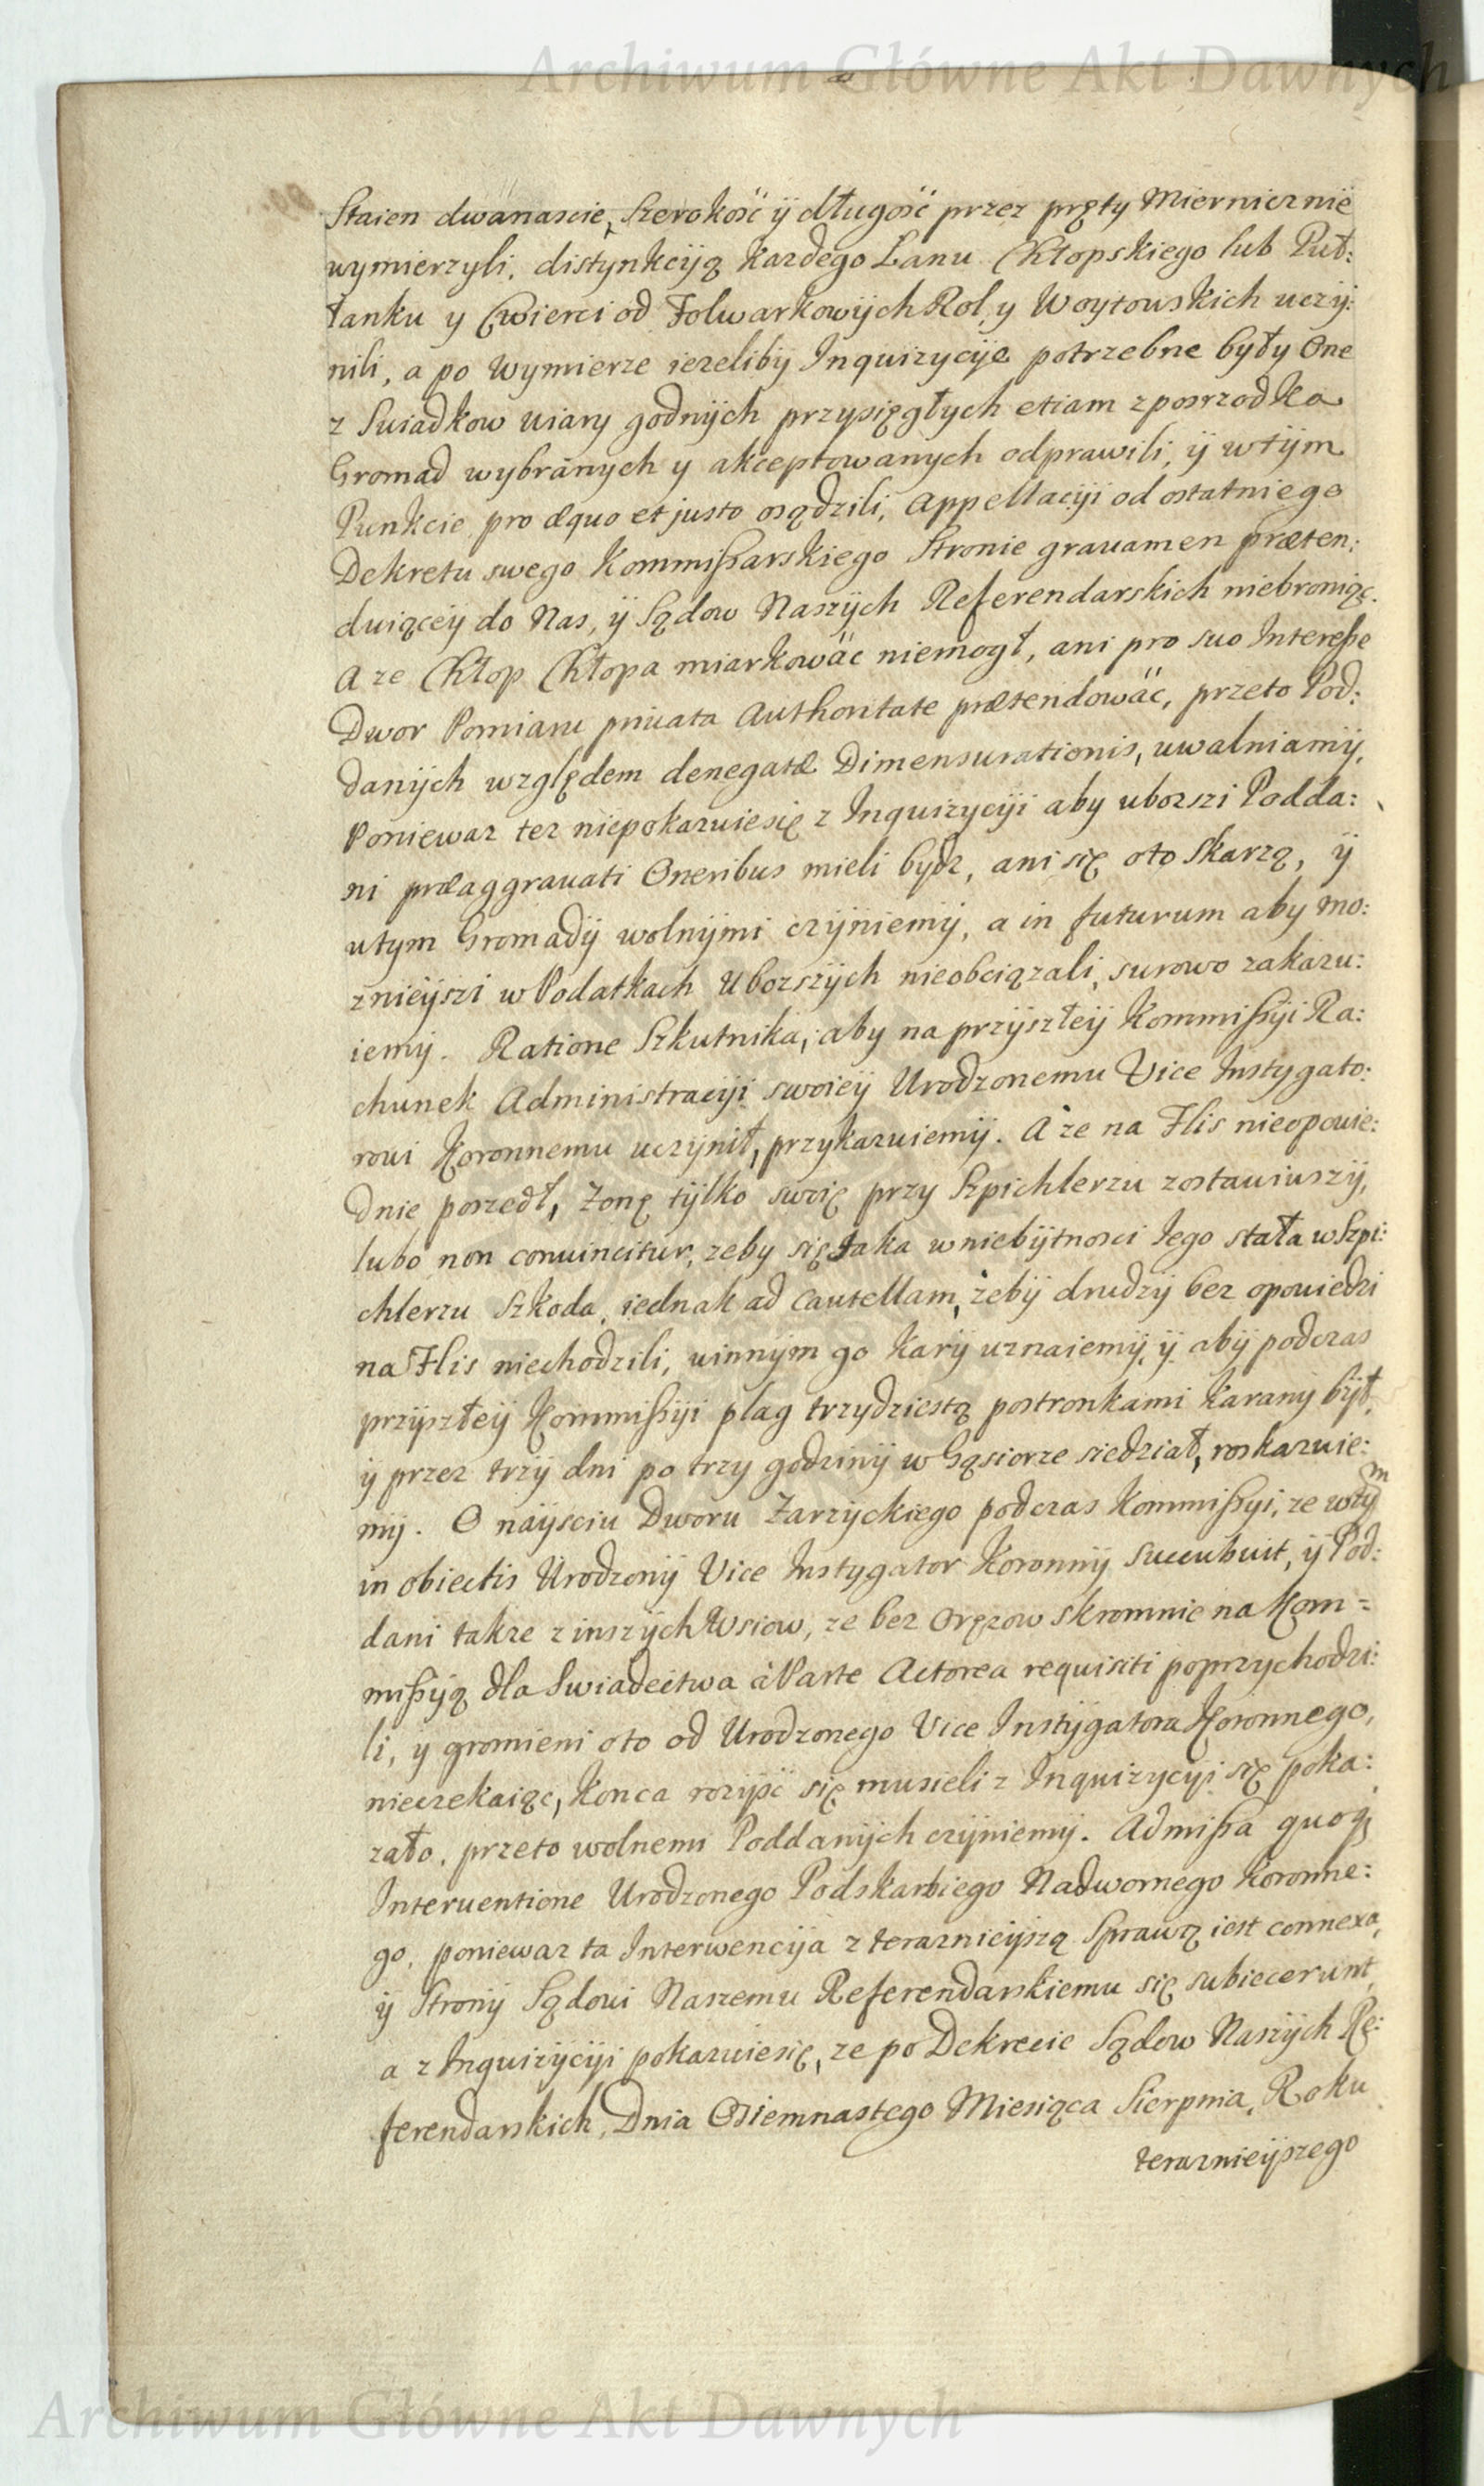 Archiwum Główne Akt Dawnych
Staien dwanascie, Szerokość ÿ długość przez pręty Miernicznie
wymierzyli, distynkcÿą kazdego Łanu Chłopskiego lub Puł:
łanku y Cwierci od Folwarkowÿch Rol, y Woytowskich uczÿ:
nili, a po wymierze iezelibÿ Inquizycÿe potrzebne były One
z Swiadkow wiary godnÿch przysięgłych etiam zposrzodka
Gromad wybranych y akceptowanÿch odprawili, ÿ wtÿm
Punkcie pro æquo et justo osądzili, Appellacÿi od ostatniego
Dekretu swego Kommissarskiego Stronie grauamen præten:
duiąceÿ do Nas, ÿ Sądow Naszÿch Referendarskich niebroniąc.
A ze Chłop Chłopa miarkowäc niemogł, ani pro suo Interesse
Dwor Pomiaru priuata Authoritate prætendowäc, przeto Pod:
danÿch względem denegatæ Dimensurationis, uwalniamÿ,
Poniewaz tez niepokazuiesię z Inquizycÿi aby ubozszi Podda:
ni præaggrauati Oneribus mieli bÿdz, ani się oto Skarzą, ÿ
wtym Gromadÿ wolnÿmi czÿniemÿ, a in futurum aby mo:
znieÿszi w Podatkach Ubozszÿch nieobciązali, surowo zakazu:
iemÿ. Ratione Szkutnika, aby na przÿszłeÿ Kommissÿi Ra:
chunek Administracÿi swoieÿ Urodzonemu Vice Instygato:
rowi Koronnemu uczÿnił, przykazuiemÿ. A ze na Flis nieopowie:
dnie poszedł, Zonę tÿlko swoię przy Szpichlerzu zostawiwszÿ,
lubo non conuincitur, zeby się Jaka w niebÿtnosci Iego stała w Szpi:
chlerzu Szkoda, iednak ad Cautellam, zebÿ drudzÿ bez opowiedzi
na Flis niechodzili, winnÿm go Karÿ uznaiemÿ, ÿ abÿ podczas
przÿszłeÿ Kommissÿi plag trzydziestą postronkami karanÿ bÿł,
ÿ przez trzÿ dni po trzy godzinÿ w Gąsiorze siedział, roskazuie:
mÿ. O naÿsciu Dworu Zarzÿckiego podczas Kommissÿi, ze wtÿm
in obiectis Urodzonÿ Vice Instygator Koronnÿ succubuit, ÿ Pod:
dani takze z inszÿch Wsiow, ze bez Oręzow skromnie na Kom=
missÿą dla Swiadectwa à Parte Actorea requisiti poprzychodzi:
li, y gromieni oto od Urodzonego Vice Instÿgatora Koronnego,
nieczekaiąc, konca rozÿsć się musieli z Inquizycÿi się poka:
zało, przeto wolnemi Poddanÿch czÿniemÿ. Admissa quoq;
Interuentione Urodzonego Podskarbiego Nadwornego Koronne:
go, poniewaz ta Interwencÿa z teraznieÿszą Sprawą iest connexa,
ÿ Stronÿ Sądowi Naszemu Referendarskiemu się subiecerunt,
a z Inquizÿcÿi pokazuiesię, ze po Dekrecie Sądow Naszÿch Re:
ferendarskich, Dnia Osiemnastego Miesiąca Sierpnia, Roku
teraznieÿszego
Archiwum Główne Akt Dawnych